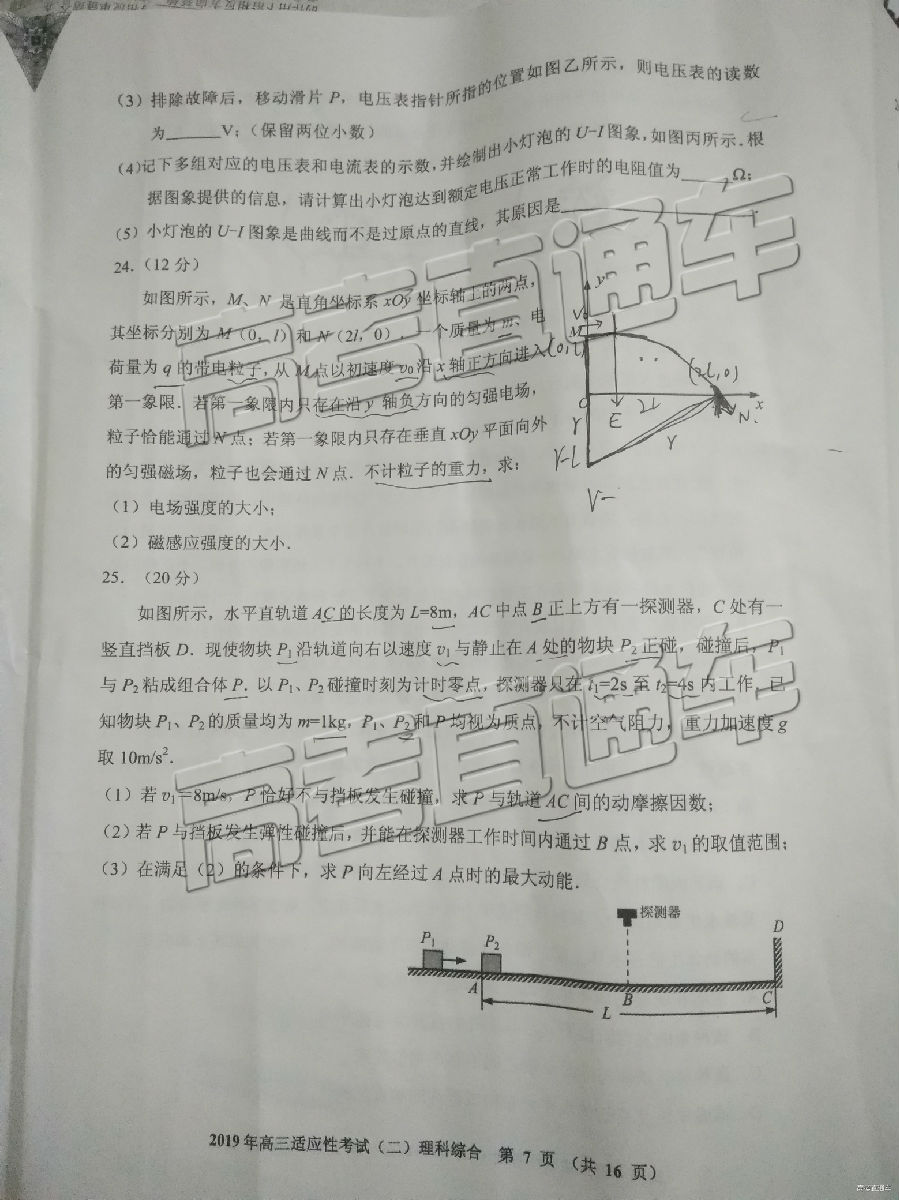 （3）排除故障后，移动滑片 P，电压表指针所指的位置如图乙所示，则电压表的读数
为______V；（保留两位小数）
（4）记下多组对应的电压表和电流表的示数，并绘制出小灯泡的 U-I 图象，如图丙所示．根
据图象提供的信息，请计算出小灯泡达到额定电压正常工作时的电阻值为______Ω；
（5）小灯泡的 U-I 图象是曲线而不是过原点的直线，其原因是______
24．（12 分）
如图所示，M、N 是直角坐标系 xOy 坐标轴上的两点，
其坐标分别为 M（0，l）和 N（2l，0）．一个质量为 m、电
荷量为 q 的带电粒子，从 M 点以初速度 v₀沿 x 轴正方向进入
第一象限．若第一象限内只存在沿 y 轴负方向的匀强电场，
粒子恰能通过 N 点；若第一象限内只存在垂直 xOy 平面向外
的匀强磁场，粒子也会通过 N 点．不计粒子的重力，求：
（1）电场强度的大小；
（2）磁感应强度的大小．
y
V₀
M
(0,l)
(2l,0)
O
E
2l
x
N
r
r
r-l
V-
25．（20 分）
如图所示，水平直轨道 AC 的长度为 L=8m，AC 中点 B 正上方有一探测器，C 处有一
竖直挡板 D．现使物块 P₁ 沿轨道向右以速度 v₁ 与静止在 A 处的物块 P₂ 正碰，碰撞后，P₁
与 P₂ 粘成组合体 P．以 P₁、P₂ 碰撞时刻为计时零点，探测器只在 t₁=2s 至 t₂=4s 内工作．已
知物块 P₁、P₂ 的质量均为 m=1kg，P₁、P₂ 和 P 均视为质点，不计空气阻力，重力加速度 g
取 10m/s²．
（1）若 v₁=8m/s，P 恰好不与挡板发生碰撞，求 P 与轨道 AC 间的动摩擦因数；
（2）若 P 与挡板发生弹性碰撞后，并能在探测器工作时间内通过 B 点，求 v₁ 的取值范围；
（3）在满足（2）的条件下，求 P 向左经过 A 点时的最大动能．
探测器
D
P₁
P₂
A
B
C
L
2019 年高三适应性考试（二）理科综合 第 7 页 （共 16 页）
高考直通车
高考直通车
高考直通车